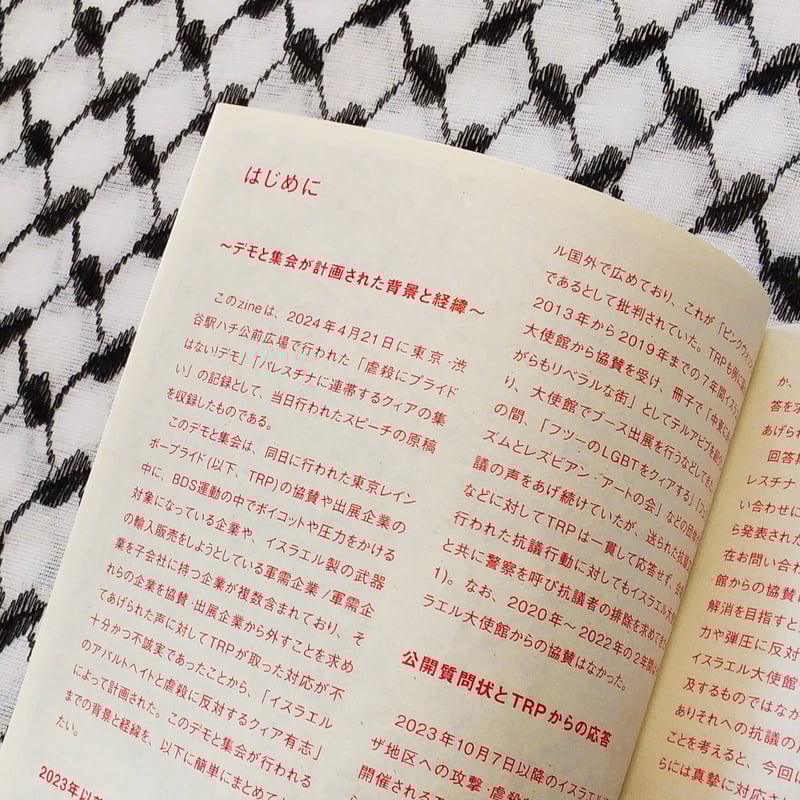 はじめに
～デモと集会が計画された背景と経緯～
このzineは、2024年4月21日に東京・渋
谷駅ハチ公前広場で行われた「虐殺にプライド
はない!デモ」「パレスチナに連帯するクィアの集
い」の記録として、当日行われたスピーチの原稿
を収録したものである。
このデモと集会は、同日に行われた東京レイン
ボープライド(以下、TRP)の協賛や出展企業の
中に、BDS運動の中でボイコットや圧力をかける
対象になっている企業や、イスラエル製の武器
の輸入販売をしようとしている軍需企業/軍需企
業を子会社に持つ企業が複数含まれており、そ
れらの企業を協賛・出展企業から外すことを求め
てあげられた声に対してTRPが取った対応が不
十分かつ不誠実であったことから、「イスラエル
のアパルトヘイトと虐殺に反対するクィア有志」
によって計画された。このデモと集会が行われる
までの背景と経緯を、以下に簡単にまとめて
たい。
2023年以
ル国外で広めており、これが「ピンクウォ
であるとして批判されていた。TRPも例に
2013年から2019年までの7年間イス
大使館から協賛を受け、冊子で「中東に
がらもリベラルな街」としてテルアビブを
り、大使館でブース出展を行うなどしてき
の間、「フツーのLGBTをクィアする」「フェ
ズムとレズビアン・アートの会」などの団体
議の声をあげ続けていたが、送られた抗議
などに対してTRPは一貫して応答せず、
行われた抗議行動に対してもイスラエル大
と共に警察を呼び抗議者の排除を求めてき
1)。なお、2020年～2022年の2年間
ラエル大使館からの協賛はなかった。
公開質問状とTRPからの応答
2023年10月7日以降のイスラエル
ザ地区への攻撃・虐殺
開催される
か、
答を求
あげられ
回答
レスチナ
い合わせに
ら発表された
在お問い合わ
館からの協賛
解消を目指すと
力や弾圧に反対
イスラエル大使館
及するものではなか
ありそれへの抗議の
ことを考えると、今回
らには真摯に対応さ